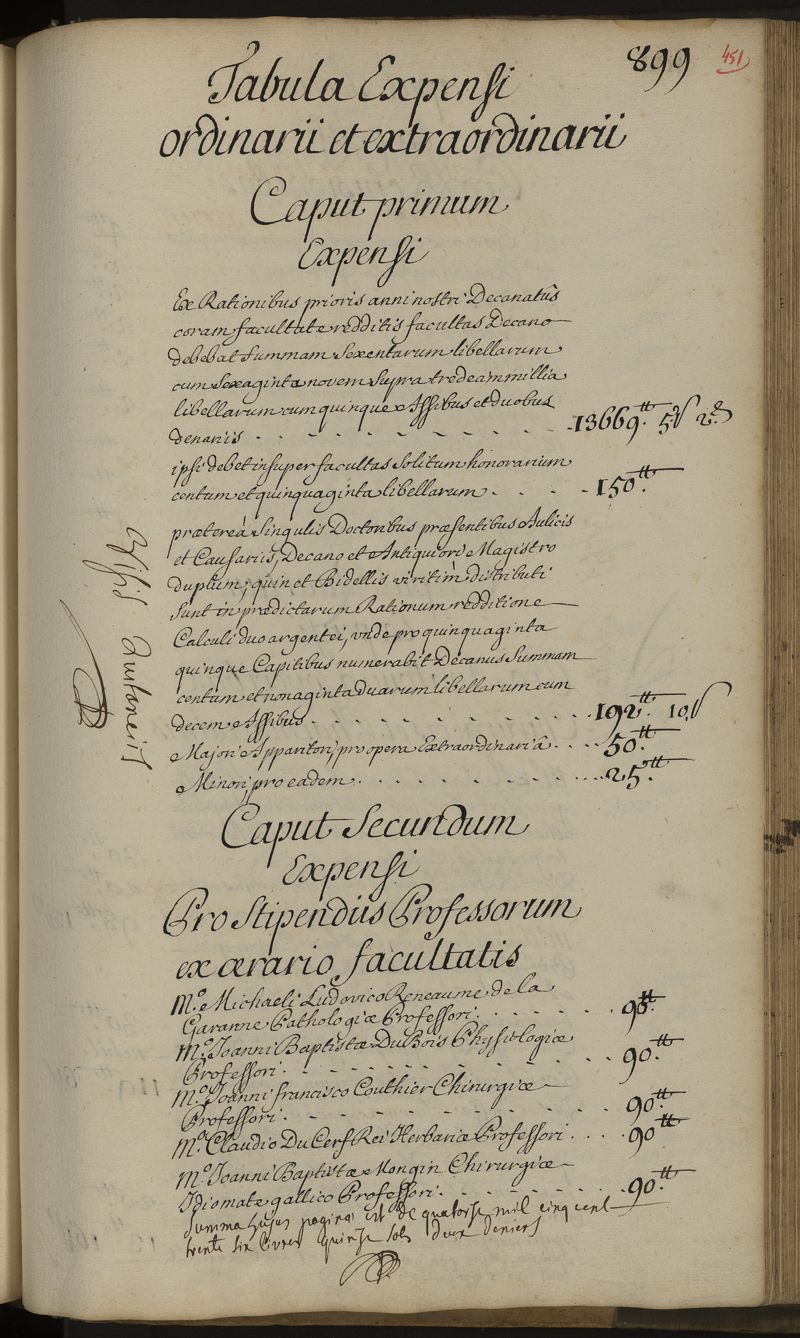 899 451
Tabula Expensi
ordinarii et extraordinarii
Caput primum
Expensi
Ex Rationibus prioris anni nostri Decanatûs
coram facultate redditis facultas Decano
debebat Summam Sexentarum libellarum
cum Sexaginta novem Supra tredecim millia
libellarum cum quinque Assibus et duobus
denariis . . . . . . . . . . 13669.tt 5.s 2.d
ipsi debet insuper facultas Solitum honorarium
centum et quinquaginta libellarum . . . . 150.tt
prætereà Singulis Doctoribus præsentibus Aulicis
et Causariis, Decano et Antiquiori Magistro
duplum; quin et Bidellis viritìm distributi
Sunt in prædictarum Rationum redditione
Calculi duo argentei, unde pro quinquaginta
quinque Capitibus numerabit Decanus Summam
centum et nonaginta duarum libellarum cum
decem Assibus . . . . . . . . . . 192.tt 10.s
Majori Apparitori, pro opera Extraordinariâ . . . . 50.tt
Minori, pro eadem . . . . . . . . . . 25.tt
Caput Secundum
Expensi
Pro Stipendiis Professorum
ex ærario facultatis
M.o Michaeli Ludovico Reneaume de la
Garanne Pathologiæ Professori . . . . . . 90.tt
M.o Joanni Baptistæ DuBois Physiologiæ
Professori . . . . . . . . . . 90.tt
M.o Joanni francisco Couthier Chirurgiæ
Professori . . . . . . . . . . 90.tt
M.o Claudio Du Cerf Rei Herbariæ Professori . . . . 90.tt
M.o Joanni Baptistæ Mongin Chirurgiæ
Idiomate gallico Professori . . . . . . . 90.tt
Summa hujus paginæ est de quatorse mil cinq cent
trente six livres quinse sols deux deniers